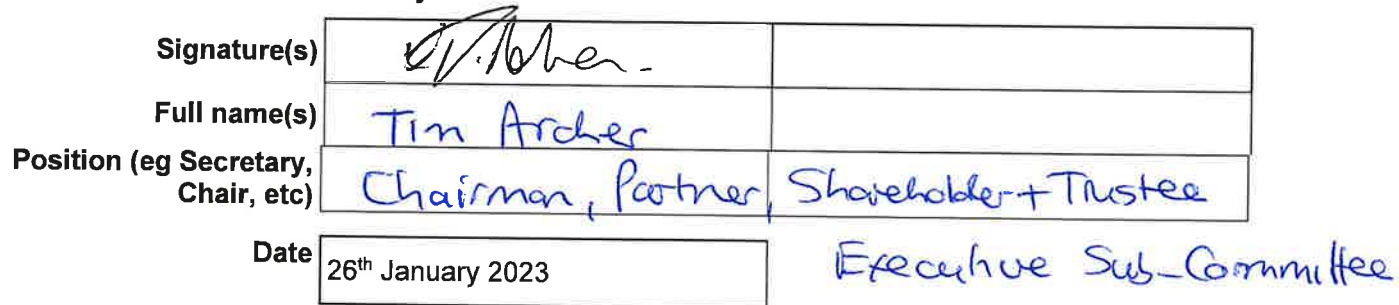 Signature(s)
Full name(s) Tim Archer
Position (eg Secretary, Chairman, Partner, Shareholder + Trustee
Chair, etc)
Date 26th January 2023 Executive Sub-Committee